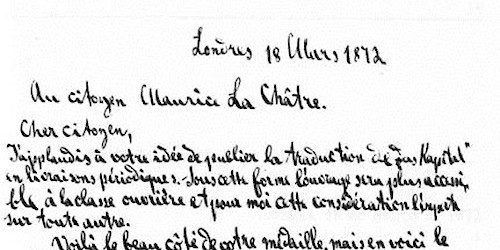 Londres 18 Mars 1872
Au citoyen Maurice La Châtre.
Cher citoyen,
J'applaudis à votre idée de publier la traduction de „Das Kapital"
en livraisons périodiques. Sous cette forme l'ouvrage sera plus accessi,
ble à la classe ouvrière et pour moi cette considération l'emporte
sur toute autre.
Voilà le beau côté de votre médaille, mais en voici le